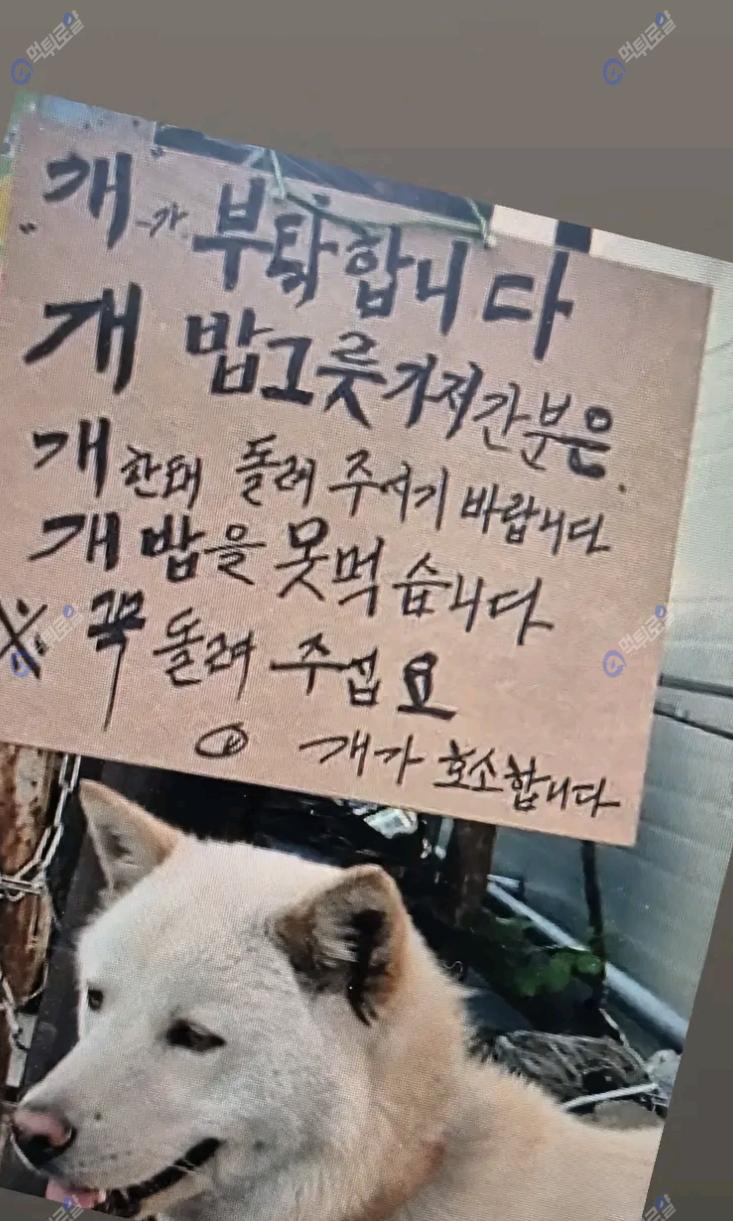 먹튀로얄 먹튀로얄
개가 부탁합니다
개 밥그릇가져간분은.
개한태 돌려 주시기 바랍니다
개 밥을 못먹습니다
※ 꼭 돌려 주섭요
개가 호소합니다
먹튀로얄 먹튀로얄